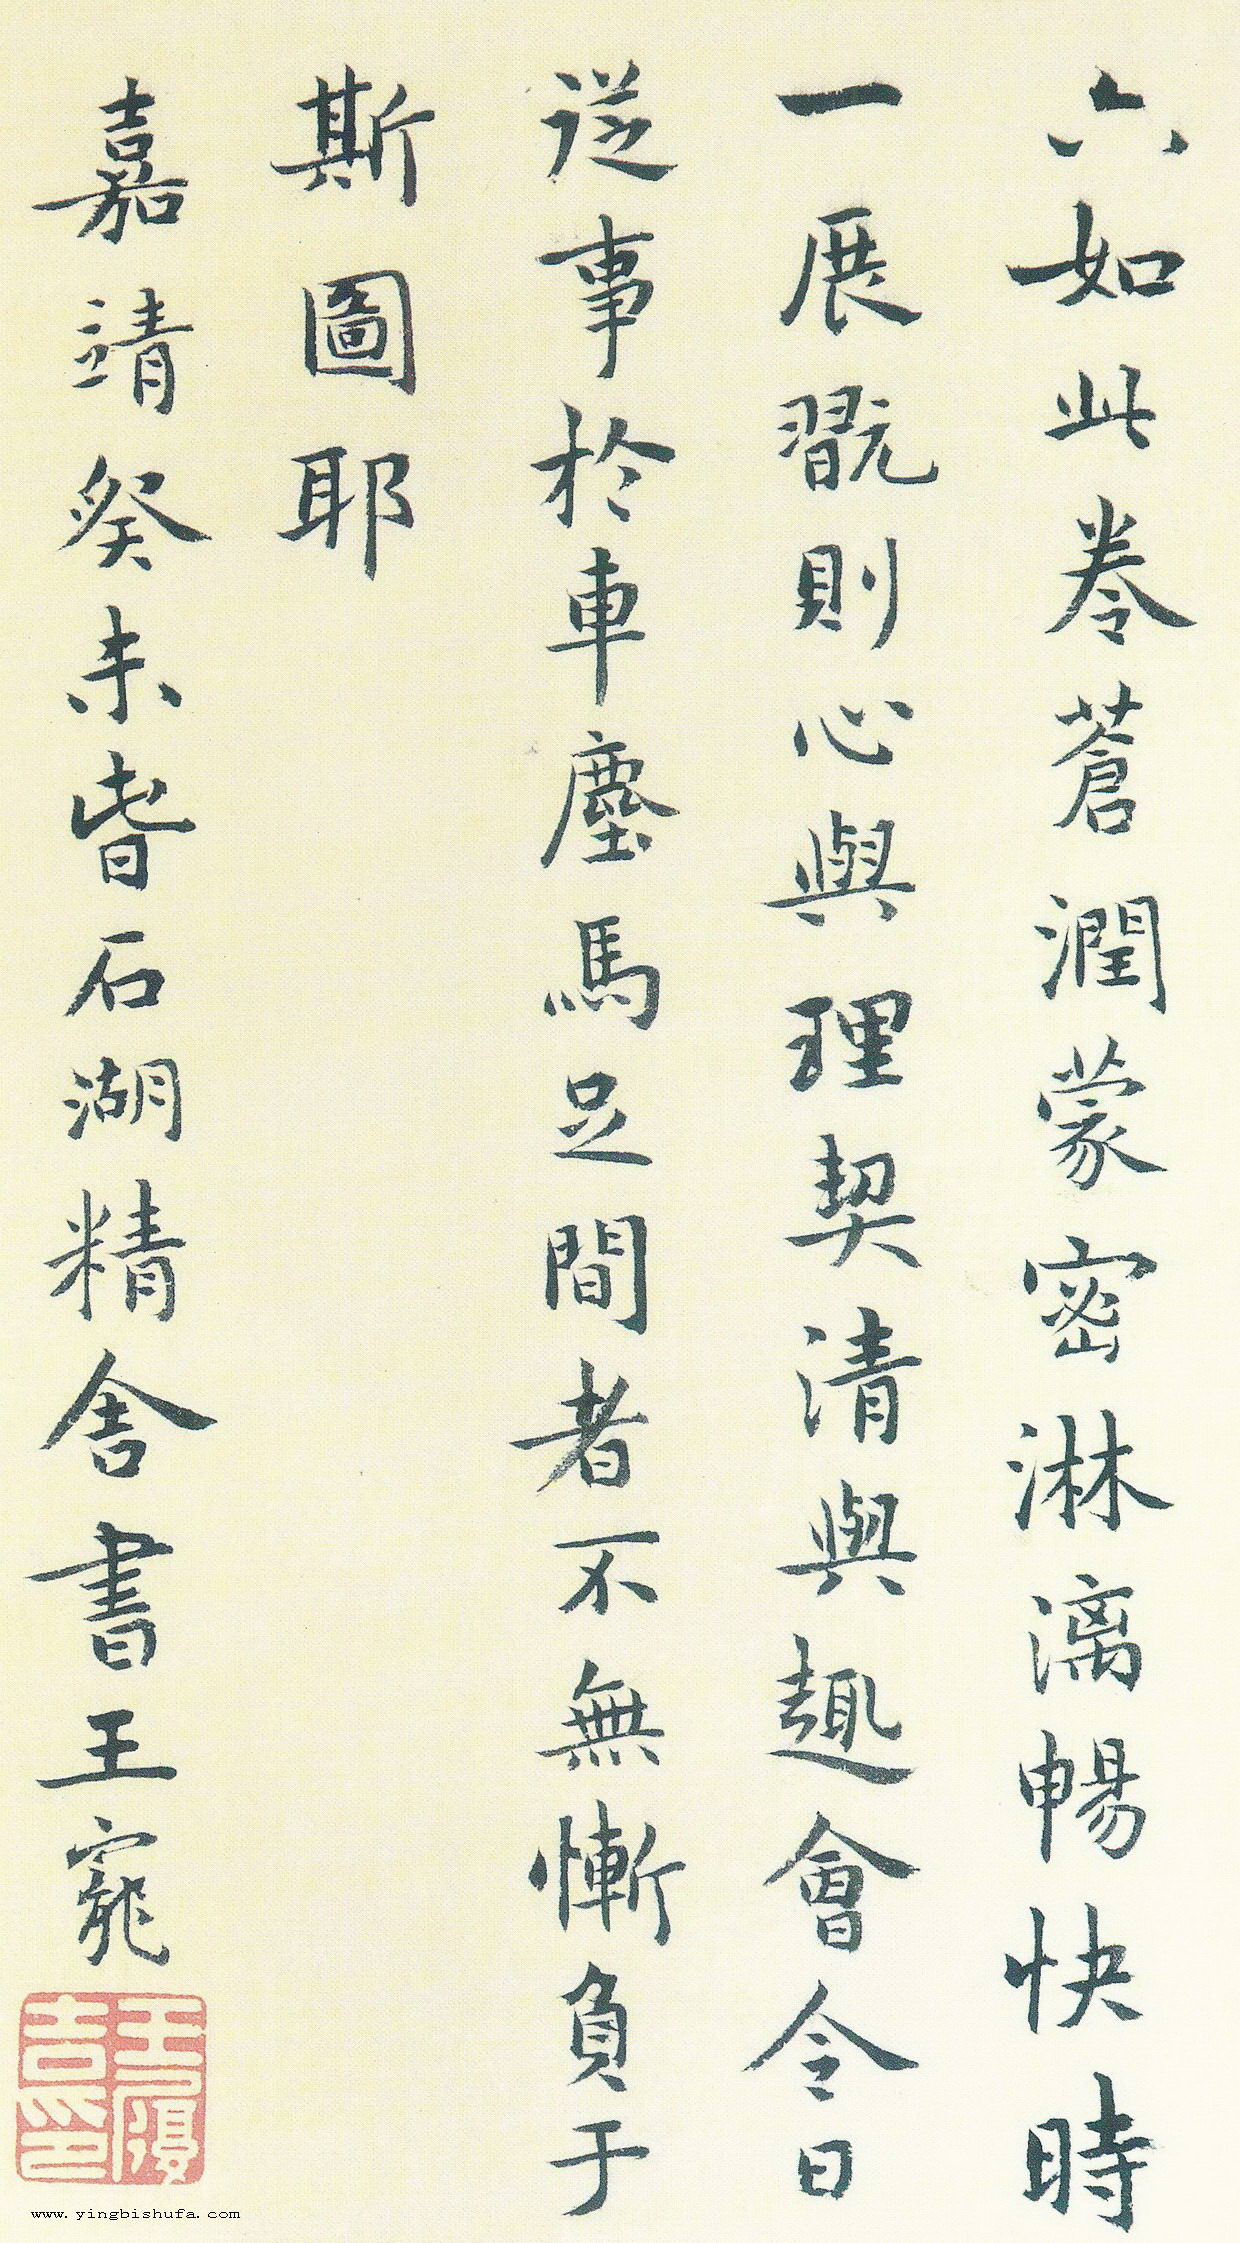 六如此卷蒼潤蒙密淋漓暢快時
一展翫則心與理契清與趣會今日
從事於車塵馬足間者不無慚負于
斯圖耶
嘉靖癸未皆石湖精舍書王寵
www.yingbishufa.com